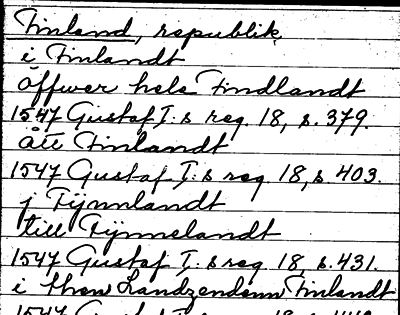 Finland, republik
i Finlandt
öffwer hela Findlandt
1547 Gustaf I:s reg 18, s. 379.
ått Finlandt
1547 Gustaf I:s reg 18, s. 403.
j Fijnnlandt
till Fijnnelandt
1547 Gustaf I:s reg 18, s. 431.
i then Landzenden Finlandt
1547 Gustaf I:s reg 18, s.